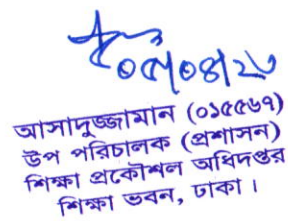 ০৫/০৪/২৩
আসাদুজ্জামান (০১৫৫৬৭)
উপ পরিচালক (প্রশাসন)
শিক্ষা প্রকৌশল অধিদপ্তর
শিক্ষা ভবন, ঢাকা।